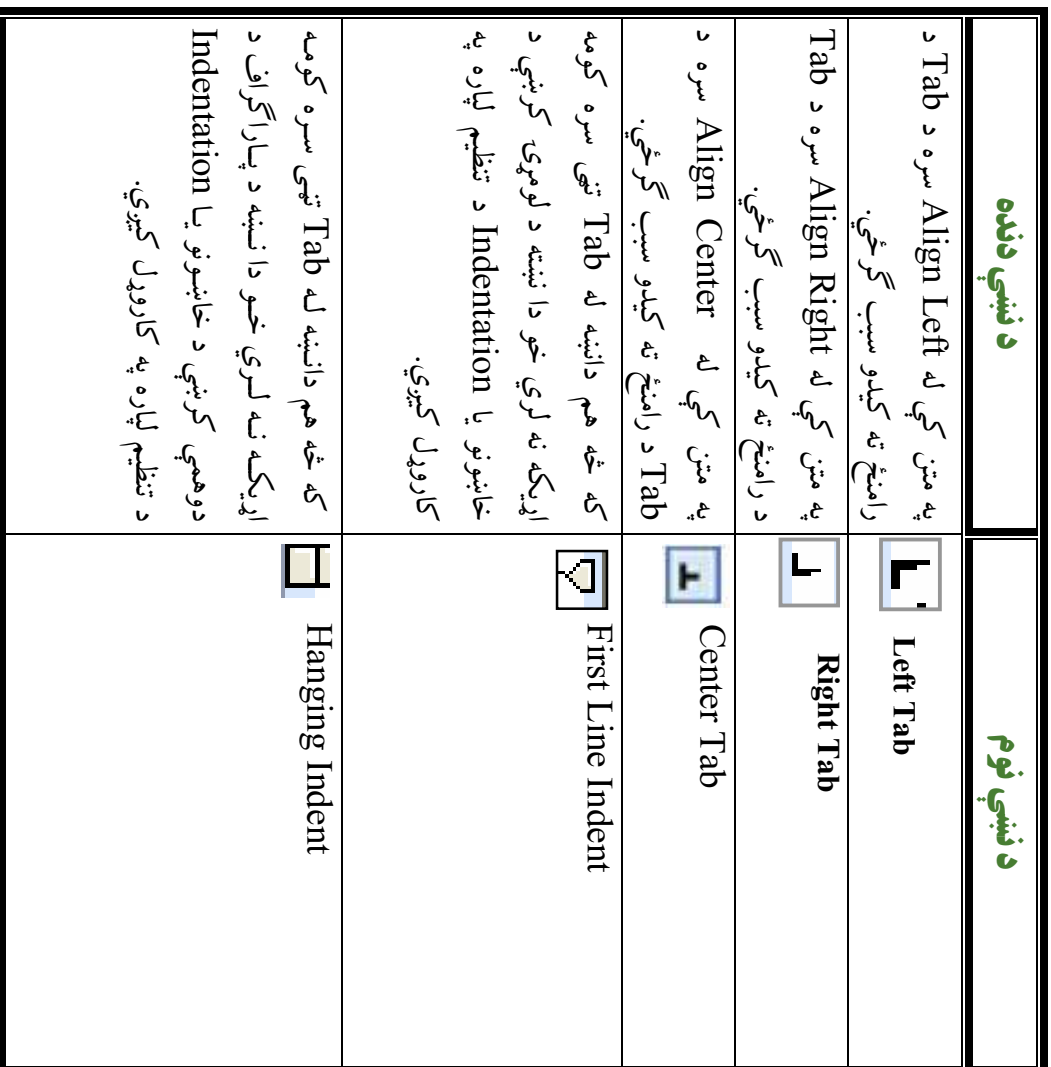 د نښې دنده
د نښې نوم
په متن کې له Align Left سره د Tab د
رامنځ ته کیدو سبب گرځي.
Left Tab
په متن کې له Align Right سره د Tab
د رامنځ ته کیدو سبب گرځي.
Right Tab
په متن کې له Align Center سره د
Tab د رامنځ ته کیدو سبب گرځي.
Center Tab
که څه هم دانښه له Tab تڼۍ سره کومه
اړیکه نه لري خو دا نښته د لومړۍ کرښې د
خاښونو یا Indentation د تنظیم لپاره په
کارول کیږي.
First Line Indent
که څه هم دانښه له Tab تڼۍ سره کومه
اړیکه نه لري خو دا نښه د پاراگراف د
دوهمې کرښې د خاښونو یا Indentation
د تنظیم لپاره په کارورل کیږي.
Hanging Indent